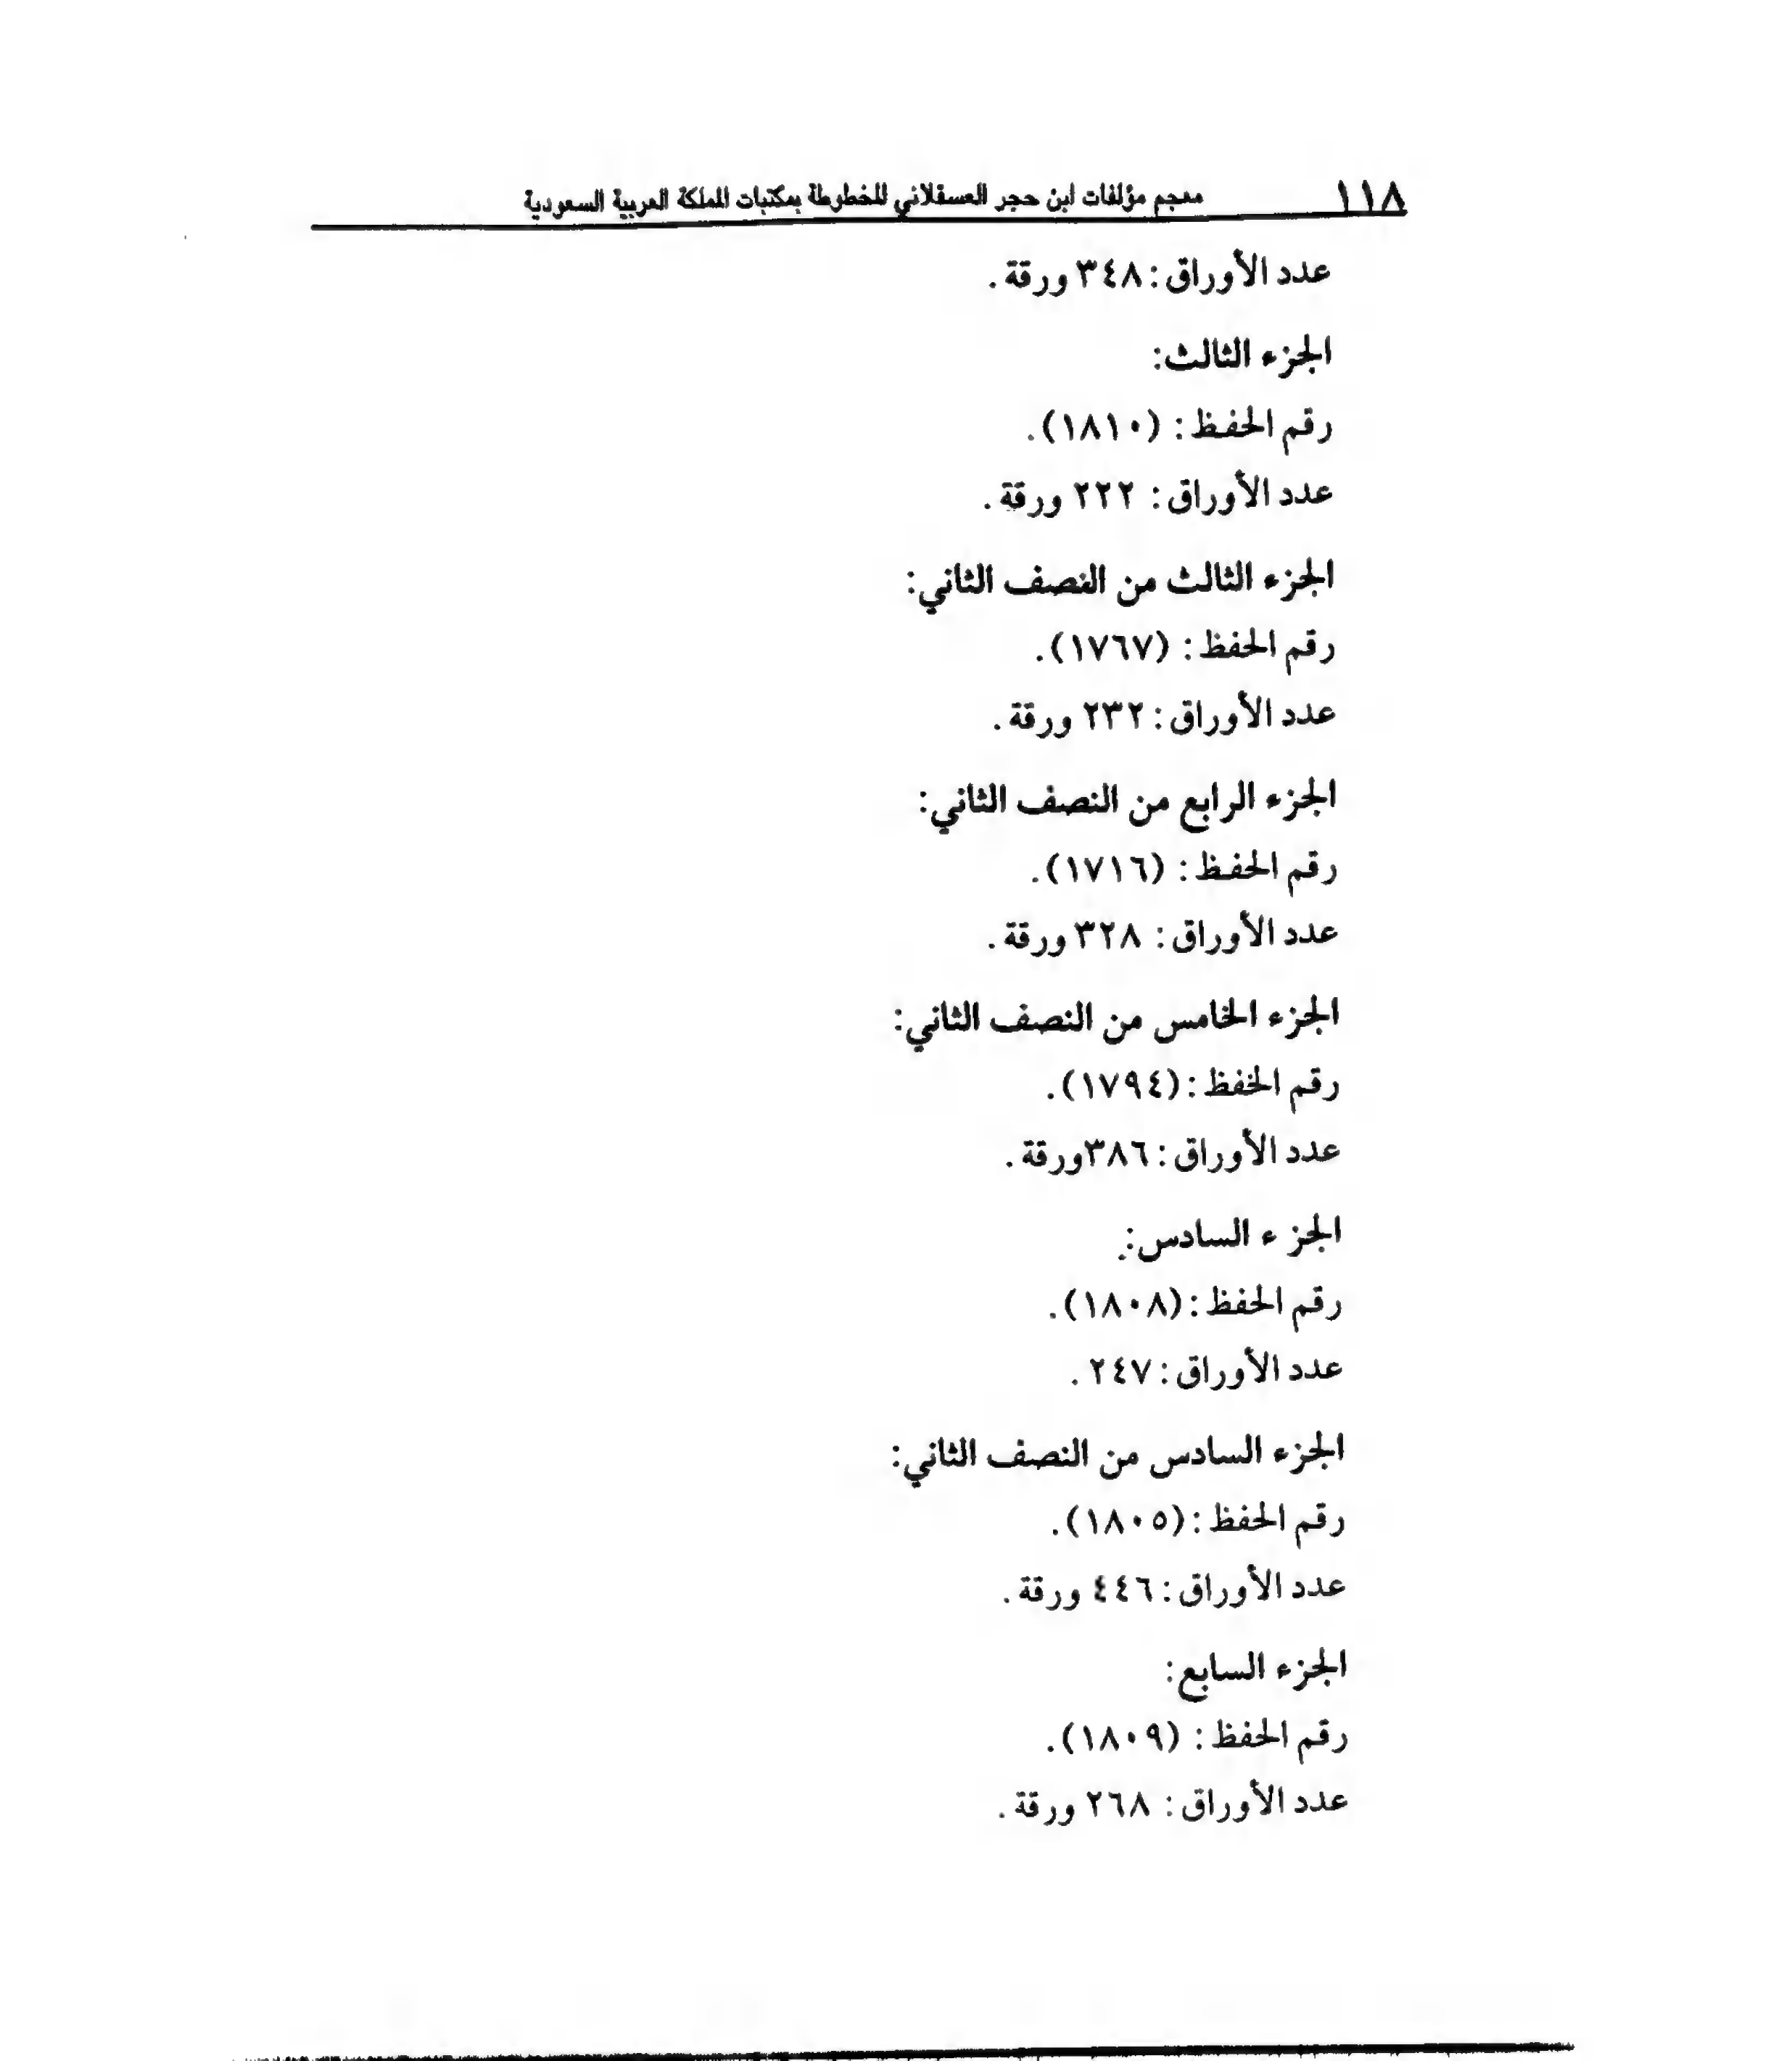 ١١٨ معجم مؤلفات ابن حجر العسقلاني المخطوطة بمكتبات المملكة العربية السعودية
عدد الأوراق: ٣٤٨ ورقة.
الجزء الثالث:
رقم الحفظ: (١٨١٠).
عدد الأوراق: ٢٢٢ ورقة.
الجزء الثالث من النصف الثاني:
رقم الحفظ: (١٧٦٧).
عدد الأوراق: ٢٣٢ ورقة.
الجزء الرابع من النصف الثاني:
رقم الحفظ: (١٧١٦).
عدد الأوراق: ٣٢٨ ورقة.
الجزء الخامس من النصف الثاني:
رقم الحفظ: (١٧٩٤).
عدد الأوراق: ٣٨٦ورقة.
الجزء السادس:
رقم الحفظ: (١٨٠٨).
عدد الأوراق: ٢٤٧.
الجزء السادس من النصف الثاني:
رقم الحفظ: (١٨٠٥).
عدد الأوراق: ٤٤٦ ورقة.
الجزء السابع:
رقم الحفظ: (١٨٠٩).
عدد الأوراق: ٢٦٨ ورقة.